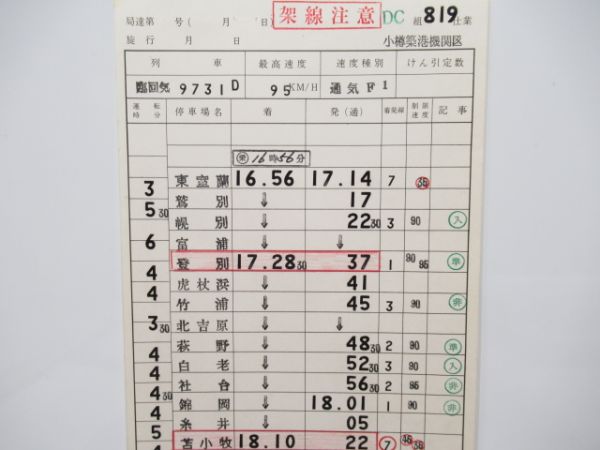 局達第 号( 月 日) 架線注意 DC 組 819 仕業
施行 月 日 小樽築港機関区
列 車 最高速度 速度種別 けん引定数
臨回気 9731D 95KM/H 通気F1
運転時分 停車場名 着 発(通) 着発線 制限速度 記事
16時56分
3 東室蘭 16.56 17.14 7 35
鷲別 ↓ 17
5 30 幌別 ↓ 22 30 3 90 入
6 富浦 ↓ ↓
登別 17.28 30 37 1 90 95 準
4 虎杖浜 ↓ 41
4 竹浦 ↓ 45 3 90 非
北吉原 ↓ ↓
3 30 萩野 ↓ 48 30 2 90 準
4 白老 ↓ 52 30 3 90 入
4 社台 ↓ 56 30 2 90 非
4 30 錦岡 ↓ 18.01 1 90 非
4 糸井 ↓ 05
5 苫小牧 18.10 22 7